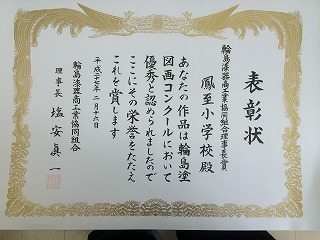 表彰状
輪島漆器商工業協同組合理事長賞
鳳至小学校殿
あなたの作品は輪島塗
図画コンクールにおいて
優秀と認められましたので
ここにその栄誉をたたえ
これを賞します
平成二十七年二月二十六日
輪島漆器商工業協同組合
理事長 塩安眞一